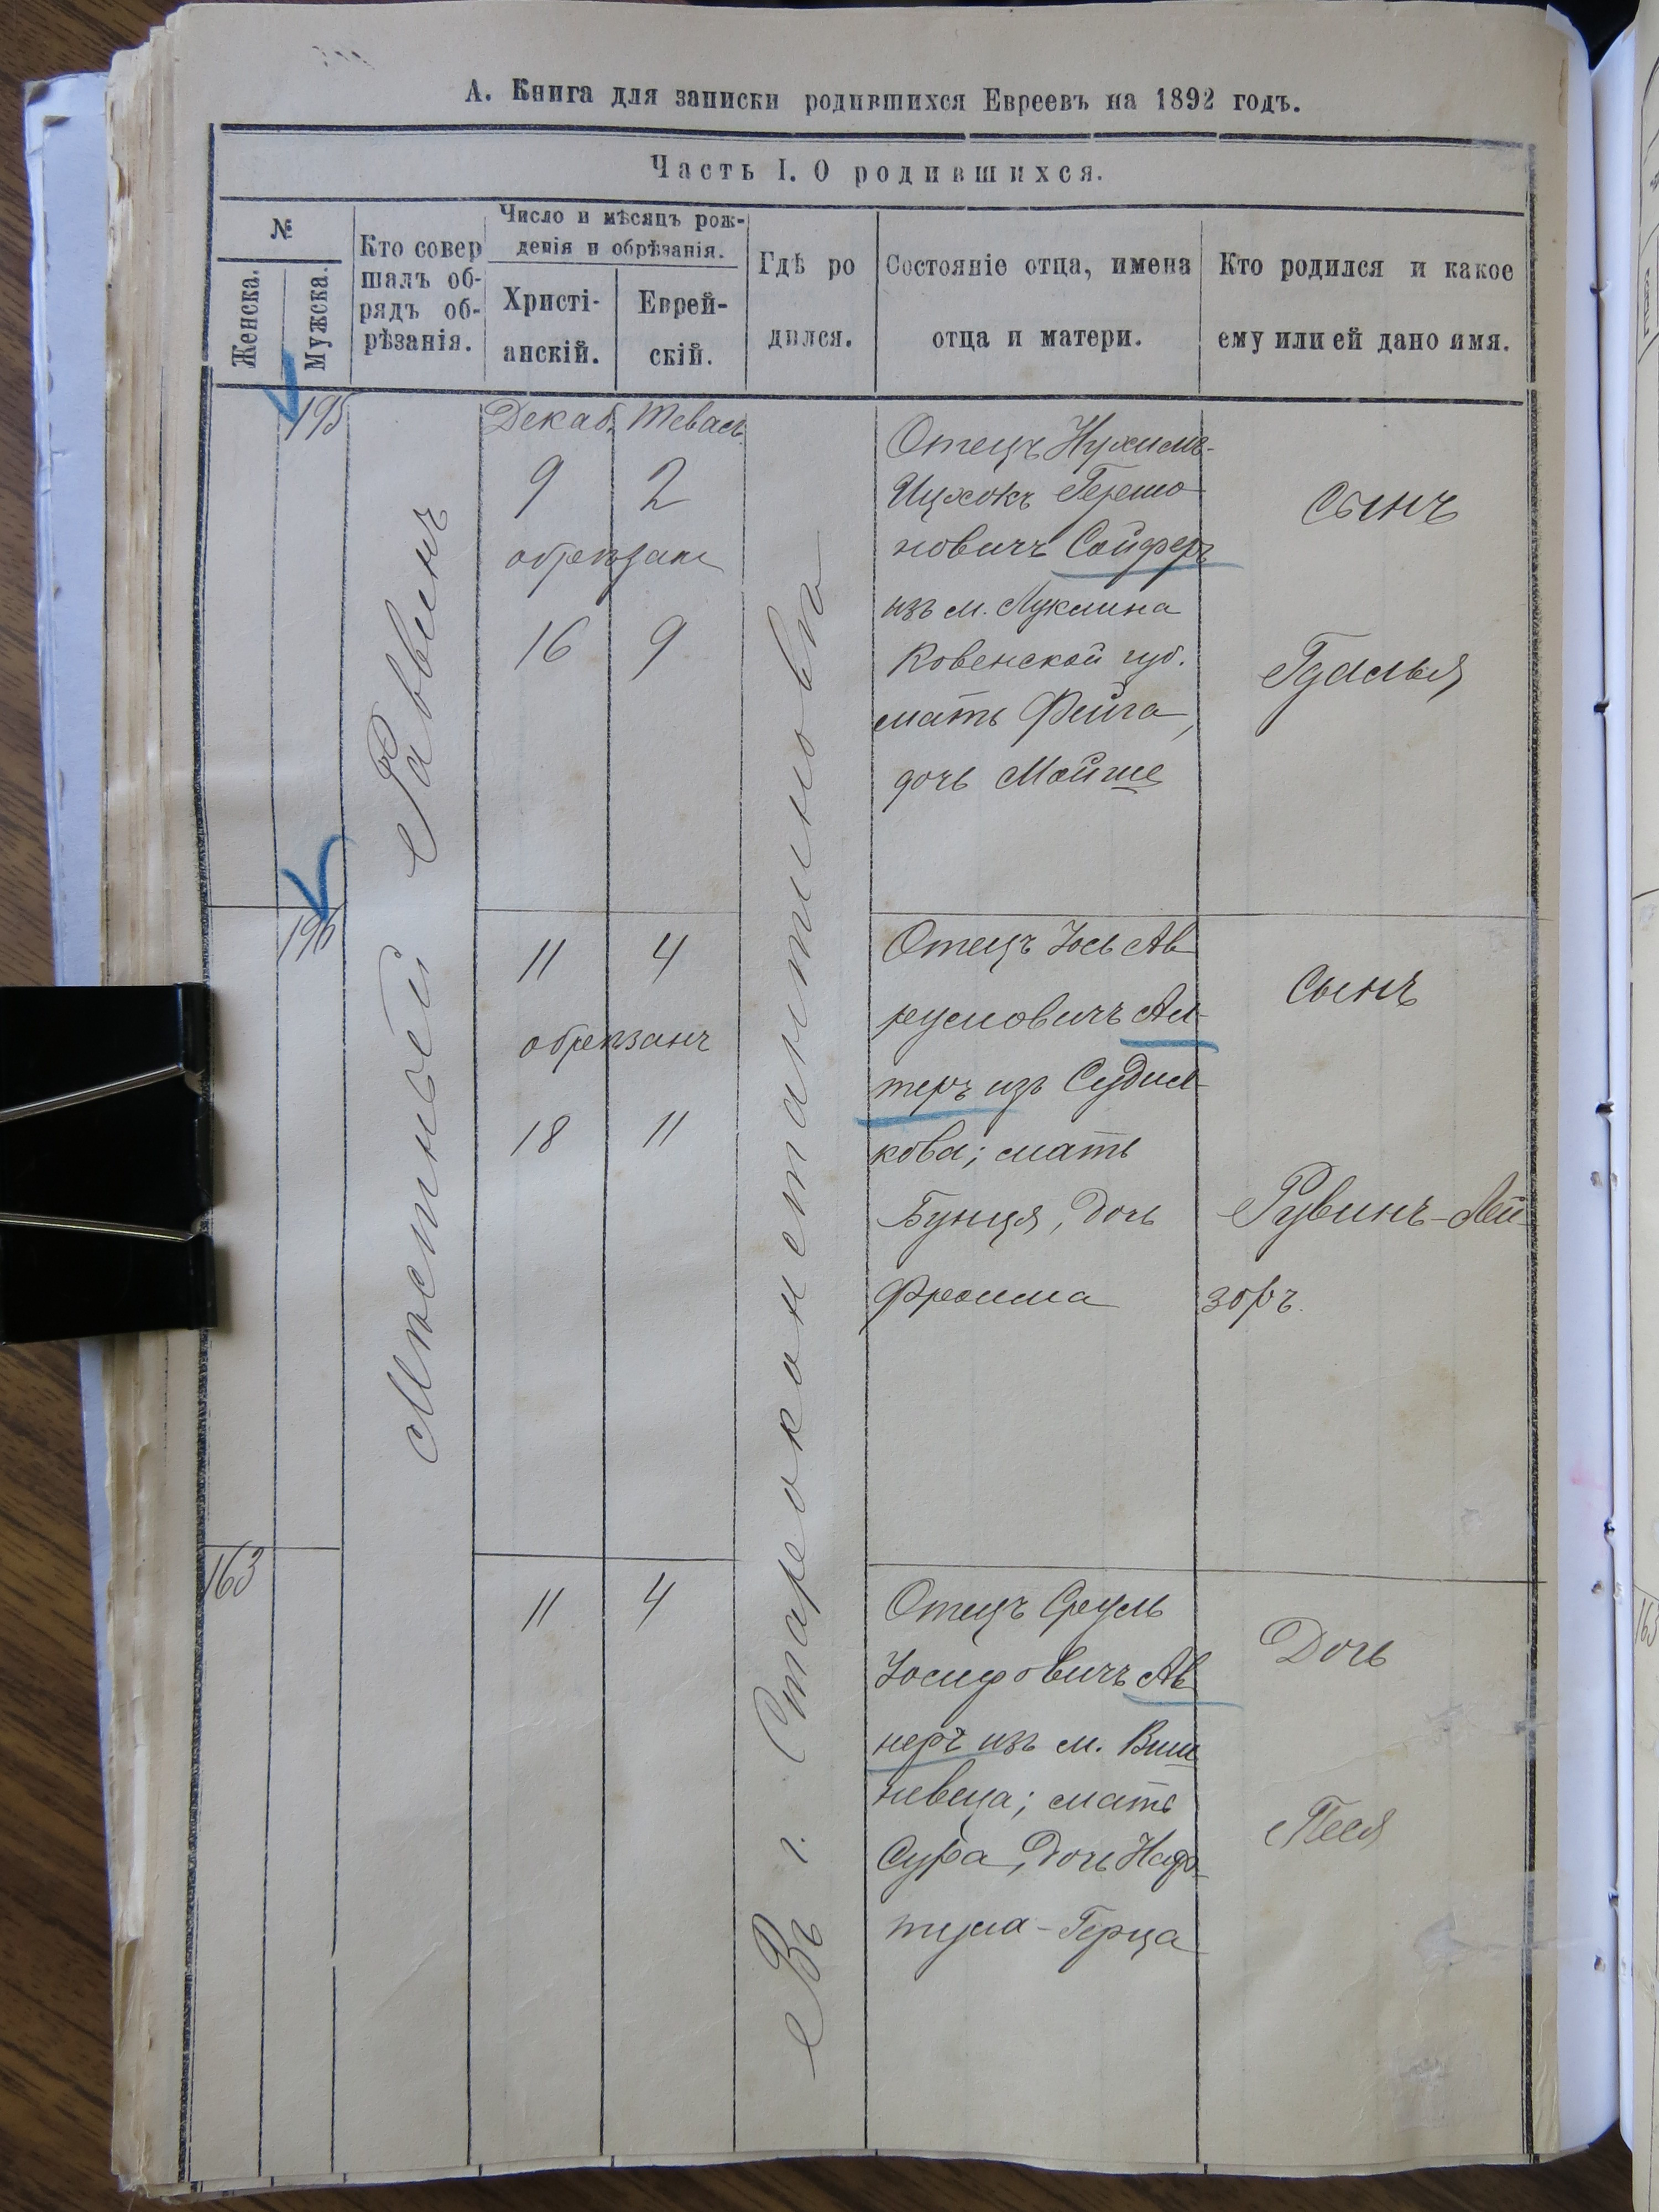 А. Книга для записки родившихся Евреевъ на 1892 годъ.
Часть I. О родившихся.
№
Женска.
Мужска.
Кто совер
шалъ об-
рядъ об-
рѣзанія.
Число и мѣсяцъ рож-
денія и обрѣзанія.
Христі-
анскій.
Еврей-
скій.
Гдѣ ро
дился.
Состояніе отца, имена
отца и матери.
Кто родился и какое
ему или ей дано имя.
195
Мѣстный Раввинъ
Декаб. Теваса
9 2
обрѣзанъ
16 9
Въ г. Староконстантиновѣ
Отецъ Нухимъ-
Ицхокъ Гершо
новичъ Сойферъ
изъ м. Лукшина
Ковенской губ.
мать Фейга,
дочь Мойше
Сынъ
Гдалья
196
11 4
обрѣзанъ
18 11
Отецъ Іось Ав
румовичъ Ал-
теръ изъ Судил-
кова; мать
Бунця, дочь
Фроима
Сынъ
Рувинъ-Лей-
зоръ.
163
11 4
Отецъ Сруль
Іосифовичъ Ав
неръ изъ м. Виш
невца; мать
Сура, дочь Наф-
тула-Герца
Дочь
Песя
163